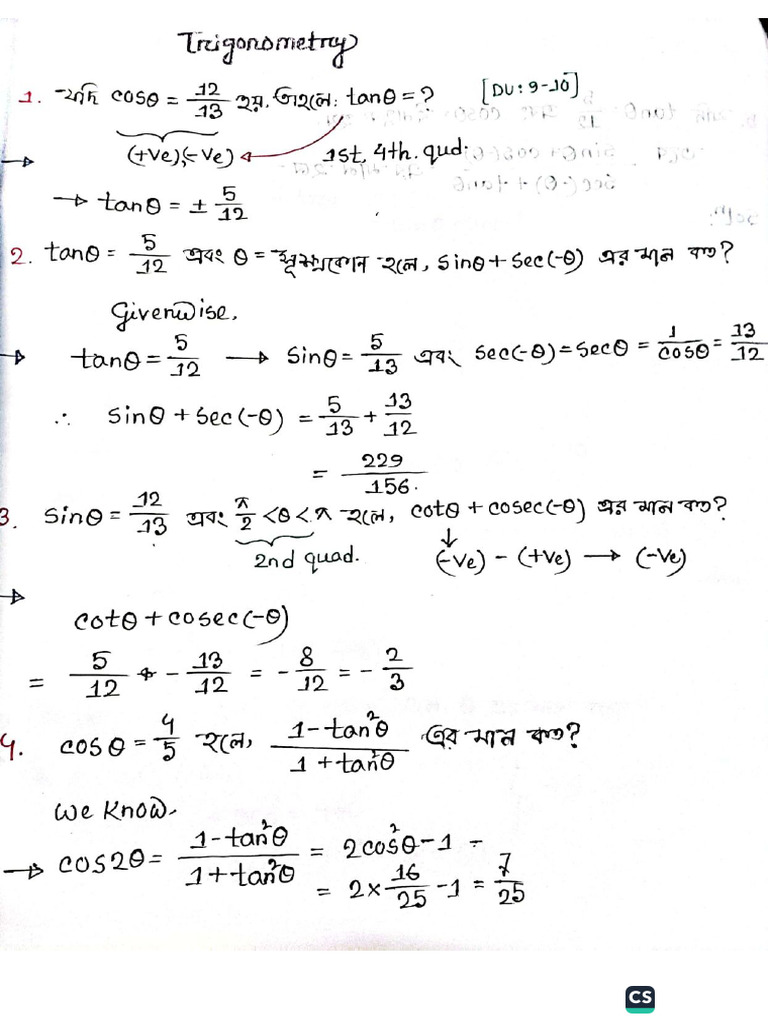 Trigonometry
1. যদি cosθ = 12/13 হয়, তাহলে: tanθ = ? [DU: 9-10]
→ (+ve), (-ve) 1st, 4th. qud.
→ tanθ = ± 5/12
2. tanθ = 5/12 এবং θ = সূক্ষ্মকোন হলে, sinθ + sec(-θ) এর মান কত?
Givenwise,
→ tanθ = 5/12 → sinθ = 5/13 এবং sec(-θ) = secθ = 1/cosθ = 13/12
∴ sinθ + sec(-θ) = 5/13 + 13/12
= 229/156.
3. sinθ = 12/13 এবং π/2 < θ < π হলে, cotθ + cosec(-θ) এর মান কত?
2nd quad. (-ve) - (+ve) → (-ve)
→
cotθ + cosec(-θ)
= 5/12 + - 13/12 = - 8/12 = - 2/3
4. cosθ = 4/5 হলে, 1-tan²θ/1+tan²θ এর মান কত?
We Know.
→ cos2θ = 1-tan²θ/1+tan²θ = 2cos²θ-1 =
= 2×16/25 -1 = 7/25
CS